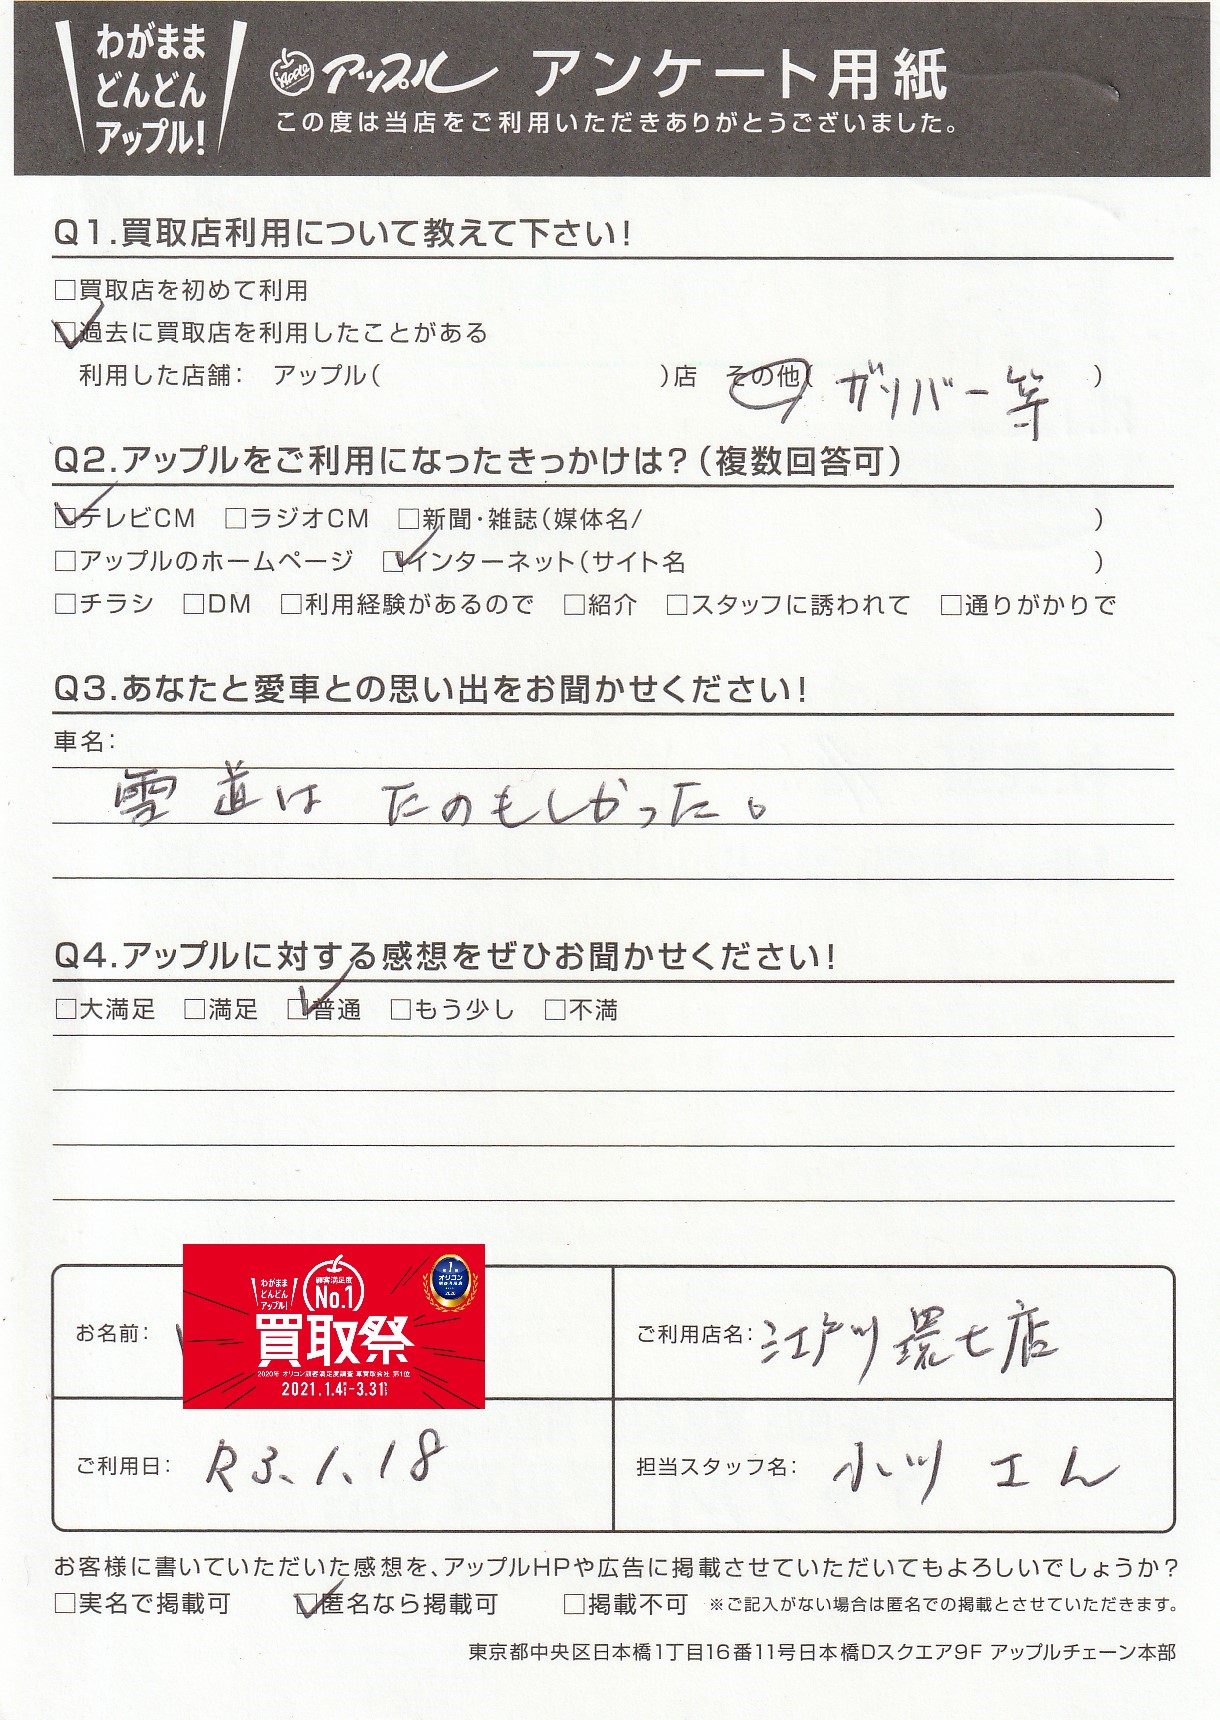 わがまま
どんどん
アップル!
Apple アップル アンケート用紙
この度は当店をご利用いただきありがとうございました。
Q1.買取店利用について教えて下さい!
□買取店を初めて利用
☑過去に買取店を利用したことがある
利用した店舗: アップル( )店 その他( ガリバー等 )
Q2.アップルをご利用になったきっかけは?(複数回答可)
☑テレビCM □ラジオCM □新聞・雑誌(媒体名/ )
□アップルのホームページ ☑インターネット(サイト名 )
□チラシ □DM □利用経験があるので □紹介 □スタッフに誘われて □通りがかりで
Q3.あなたと愛車との思い出をお聞かせください!
車名:
雪道は たのもしかった。
Q4.アップルに対する感想をぜひお聞かせください!
□大満足 □満足 ☑普通 □もう少し □不満
お名前:
わがまま
どんどん
アップル!
顧客満足度
No.1
買取祭
2020年 オリコン顧客満足度調査 車買取会社 第1位
2021.1.4-3.31
ご利用店名: 江戸川環七店
ご利用日: R3.1.18
担当スタッフ名: 小川 さん
お客様に書いていただいた感想を、アップルHPや広告に掲載させていただいてもよろしいでしょうか?
□実名で掲載可 ☑匿名なら掲載可 □掲載不可 ※ご記入がない場合は匿名での掲載とさせていただきます。
東京都中央区日本橋1丁目16番11号日本橋Dスクエア9F アップルチェーン本部